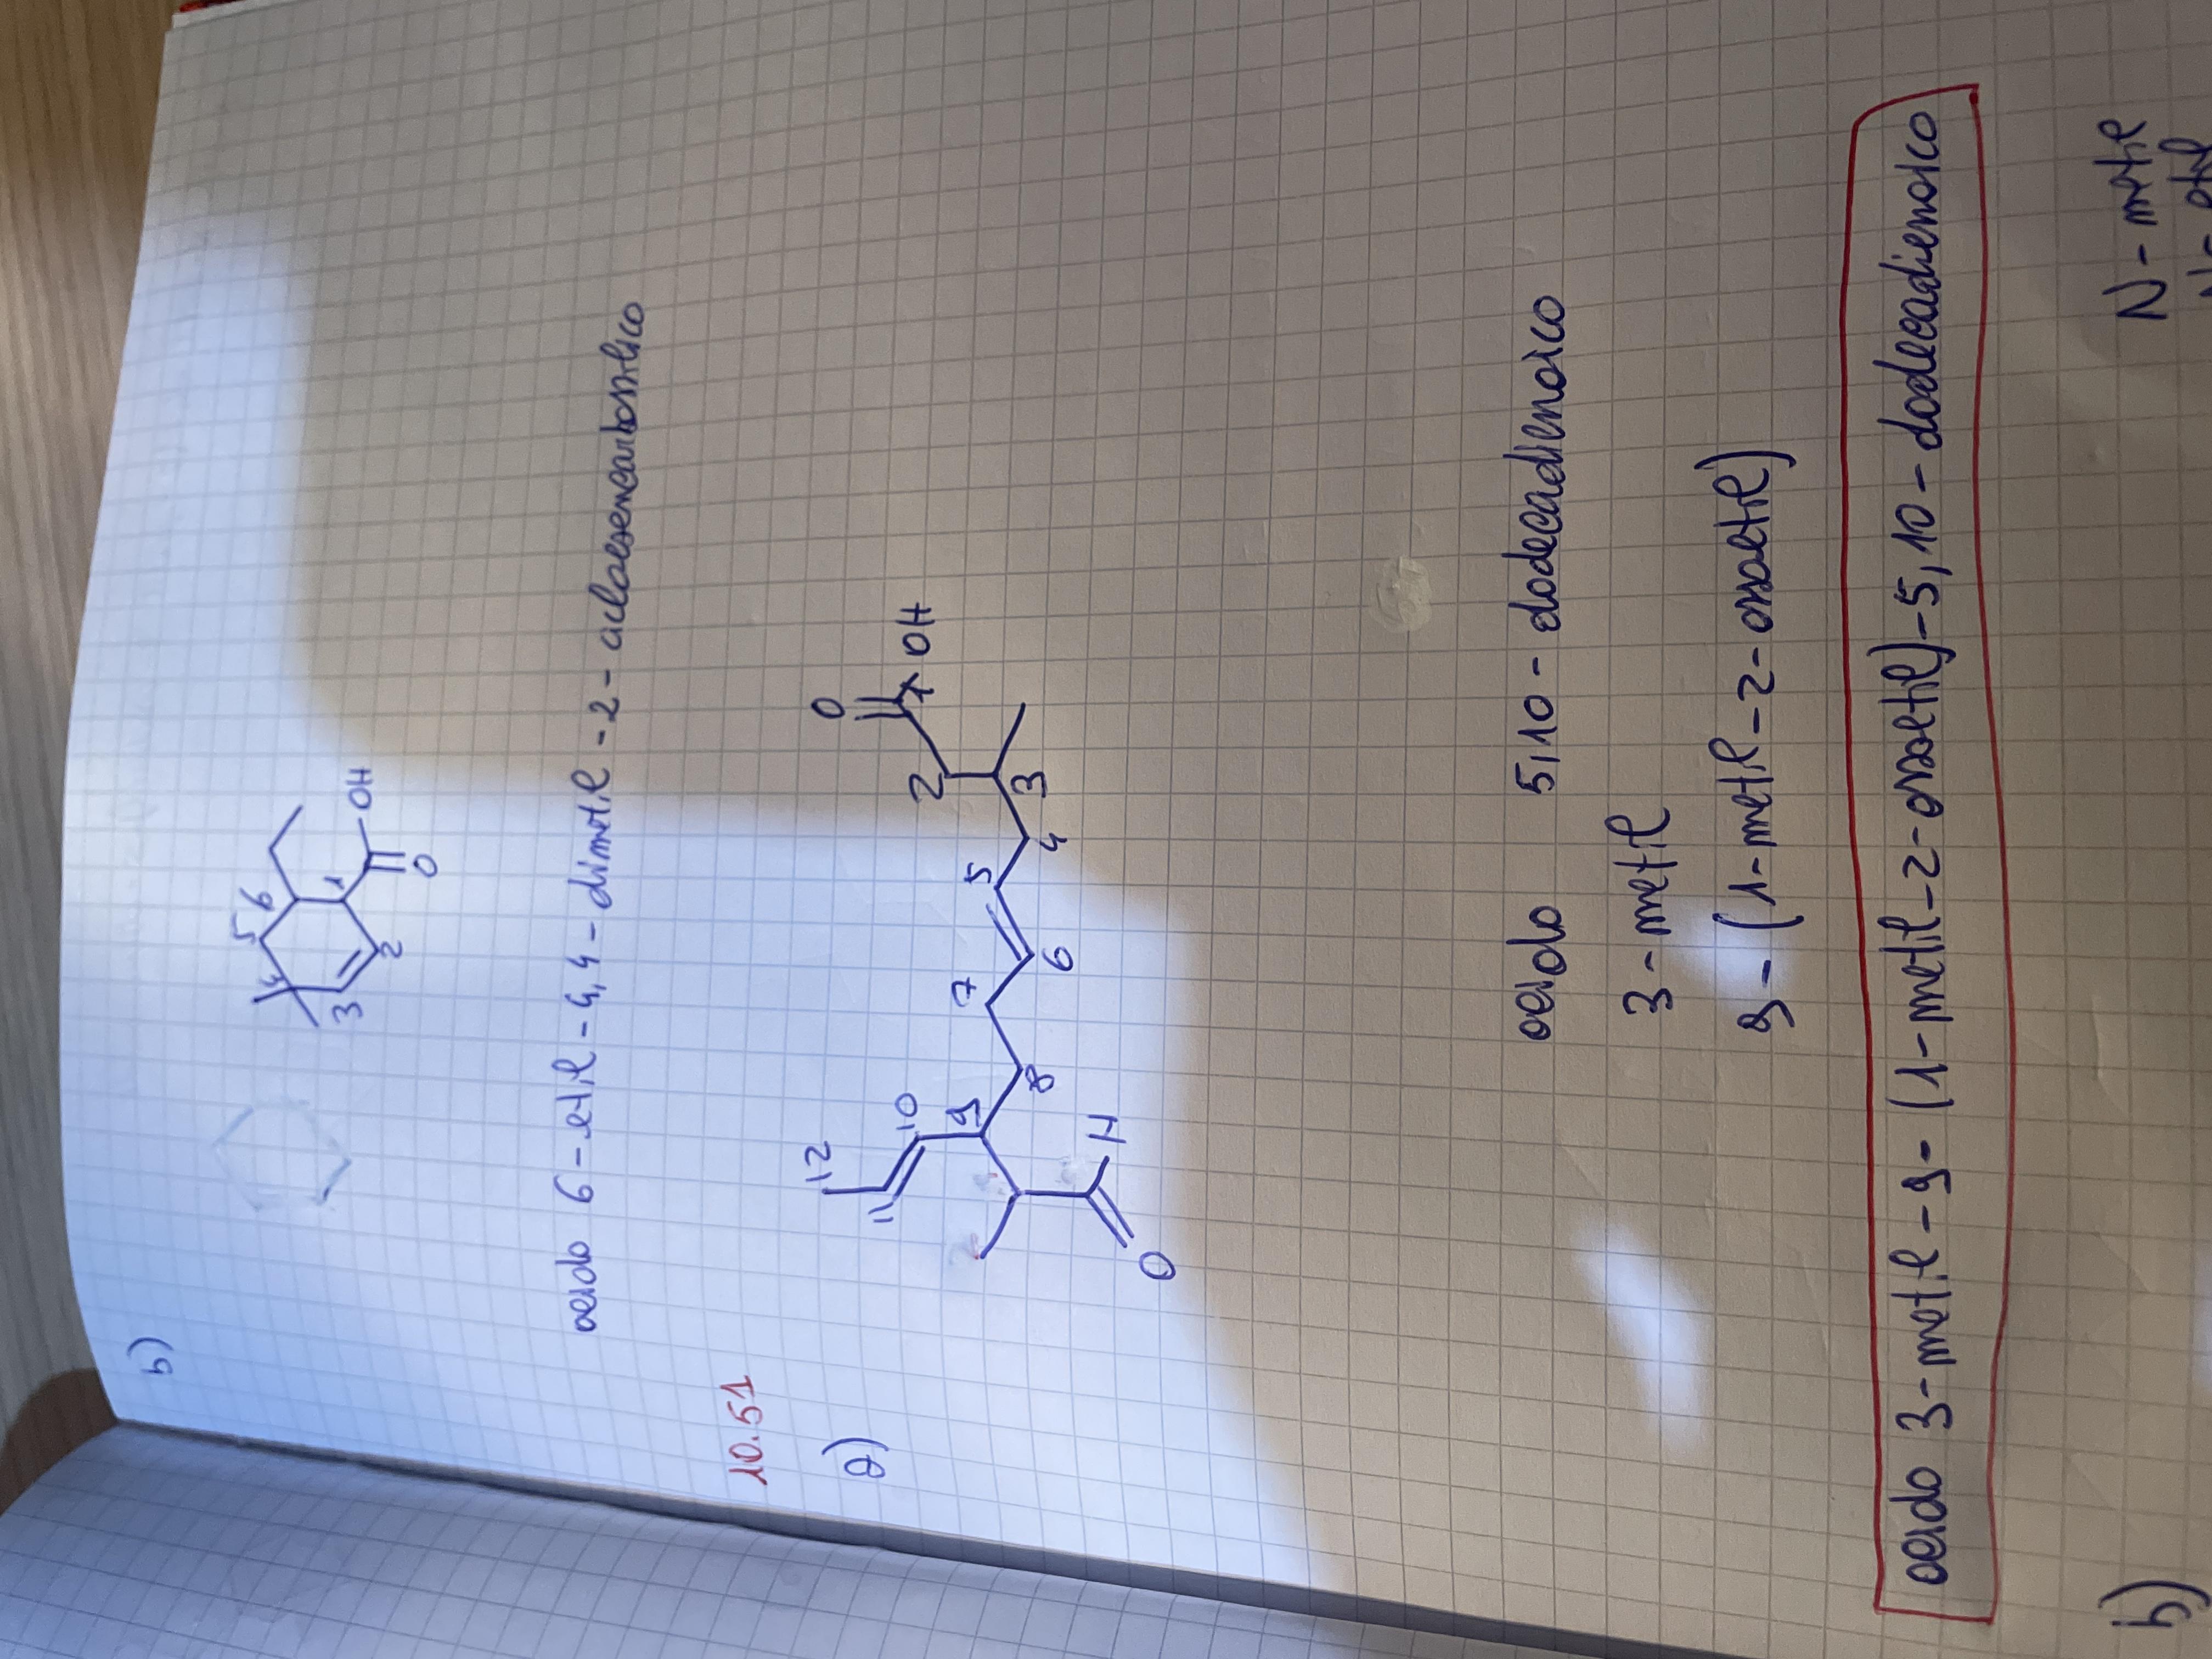 b)
5 6
4
1
OH
3
2
O
acido 6-etil-4,4-dimetil-2-cicloesencarbossilico
10.51
a)
12
O
11
10
2
1
OH
9
7
5
3
8
6
4
H
O
acido 5,10-dodecadienoico
3-metil
9-(1-metil-2-ossoetil)
acido 3-metil-9-(1-metil-2-ossoetil)-5,10-dodecadienoico
b)
N-metil